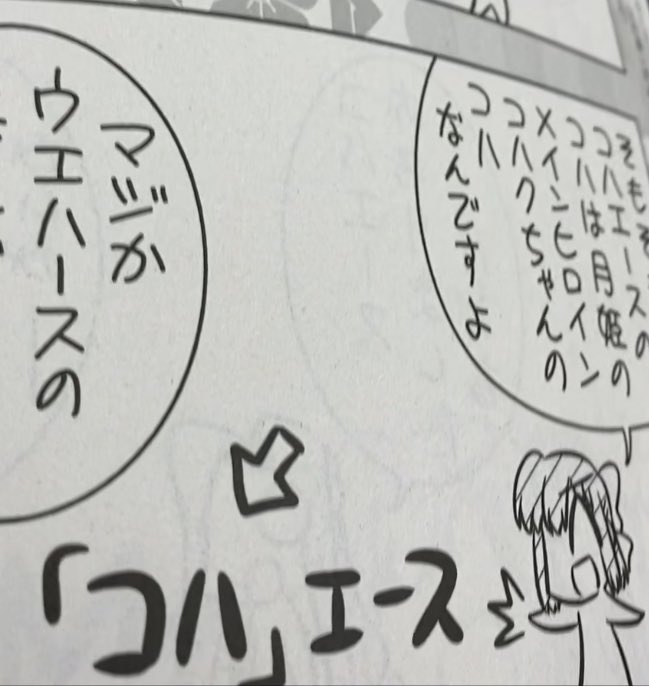 そもそも
コハエースの
コハは月姫の
メインヒロイン
コハクちゃんの
コハ
なんですよ
マジか
ウエハースの
「コハ」エース